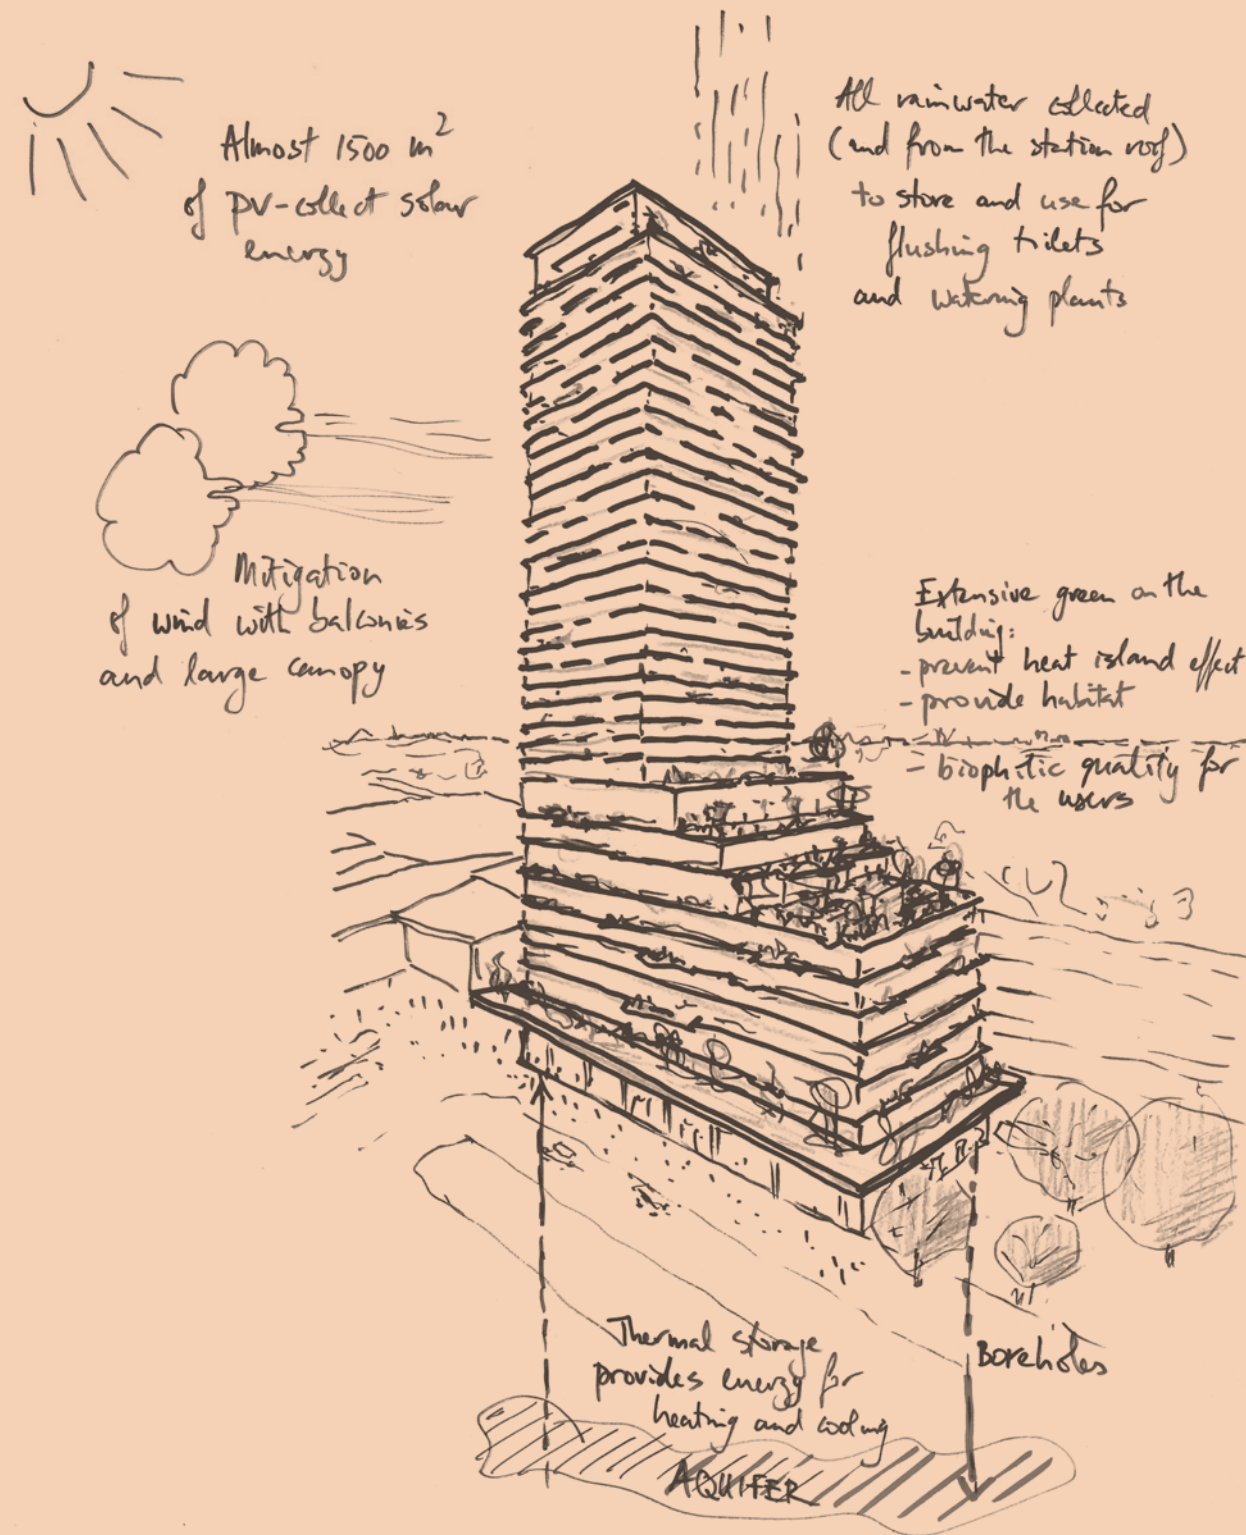 Almost 1500 m²
of PV-collect solar
energy
All rainwater collected
(and from the station roof)
to store and use for
flushing toilets
and watering plants
Mitigation
of wind with balconies
and large canopy
Extensive green on the
building:
- prevent heat island effect
- provide habitat
- biophilic quality for
the users
Thermal storage
provides energy for
heating and cooling
Boreholes
AQUIFER